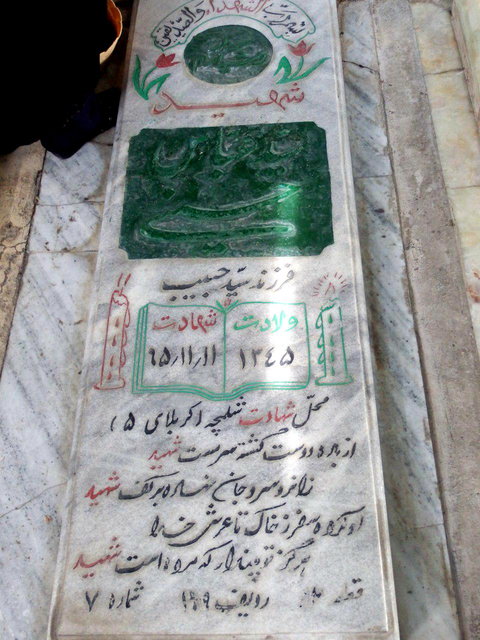 شهید
سید عباس
حسینی
فرزند سید حبیب
ولادت شهادت
۱۳۴۵ ۶۵/۱۱/۱۱
محل شهادت شلمچه (کربلای ۵)
از باده دوست گشته سرمست شهید
زانرو سر و جان نهاده بر کف شهید
او کرده سفر ز خاک تا عرش خدا
هرگز تو مپندار که مرده است شهید
قطعه ردیف ۱۴۹ شماره ۷